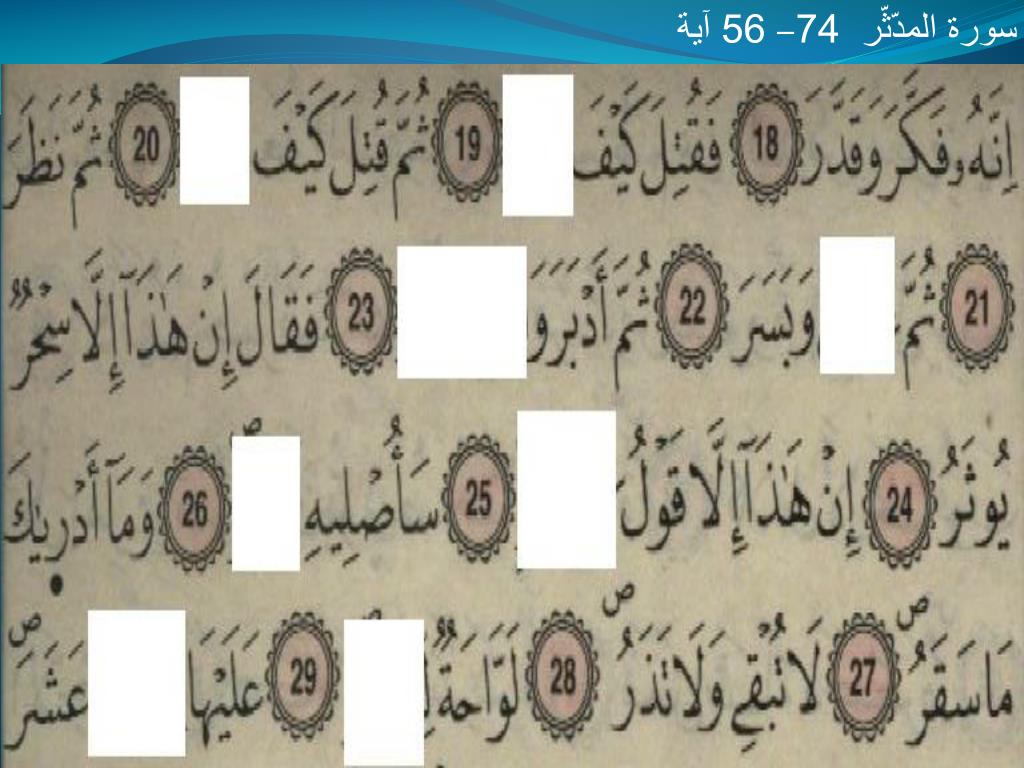 سورة المدّثّر 74– 56 آية
إِنَّهُۥ فَكَّرَ وَقَدَّرَ 18 فَقُتِلَ كَيْفَ 19 ثُمَّ قُتِلَ كَيْفَ 20 ثُمَّ نَظَرَ
21 ثُمَّ وَبَسَرَ 22 ثُمَّ أَدْبَرَ وَ 23 فَقَالَ إِنْ هَٰذَآ إِلَّا سِحْرٌ
يُوثَرُ 24 إِنْ هَٰذَآ إِلَّا قَوْلُ 25 سَأُصْلِيهِ 26 وَمَآ أَدْرِىٰكَ
مَا سَقَرُ 27 لَا تُبْقِے وَلَا تَذَرُ 28 لَوَّاحَةٌ 29 عَلَيْهَا عَشَرَ